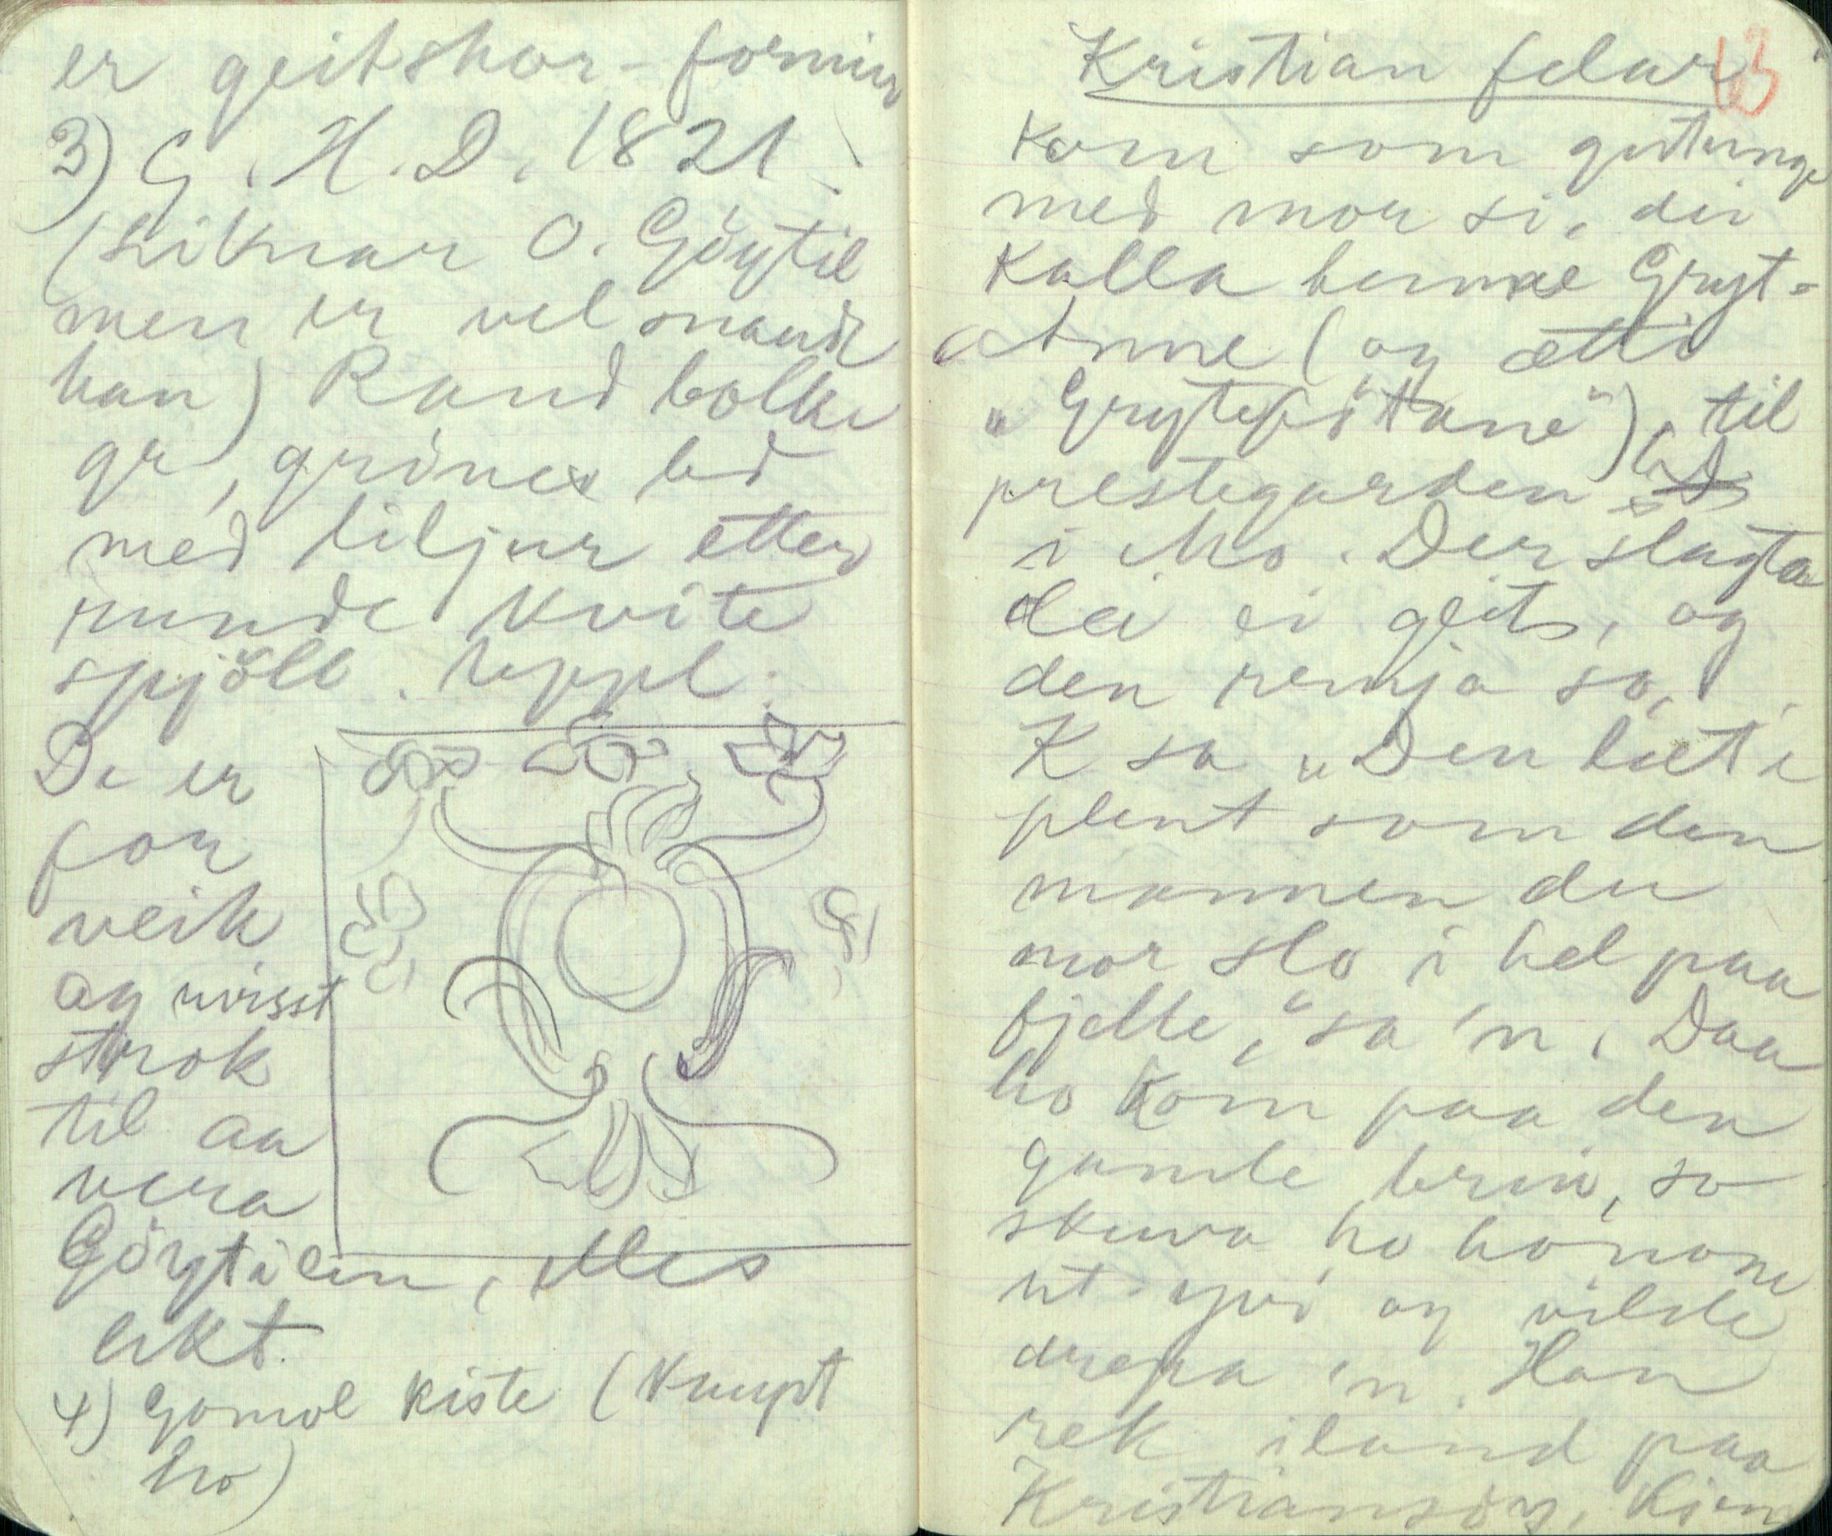 er geitskor-formin
3) G. H. D. 1821.
(Liknar O. Göytil
men er vel snaudt
han) Rand bolke
gr, gröne bd
med liljur etter
runde kvite
spjöll. Uppl:
De er
for
veik
og uvisst
strok
til aa
vera
Göytilen, elles
likt.
4) Gomol kiste (Knupt
ho)
13
Kristian felar
Kom som gutunge
med mor si, dei
kalla henne Gryt-
Anne (og ætti
„Gryteföttane"), til
prestegarden
i Mo. Der slagta
dei ei geit, og
den remja so,
K sa „Den læt i
plent som den
mannen du
mor slo i hel paa
fjelle," sa 'n. Daa
ho kom paa den
gamle brui, so
skuva ho honom
ut-yvi og vilde
drepa 'n. Han
rek iland paa
Kristiansöy,